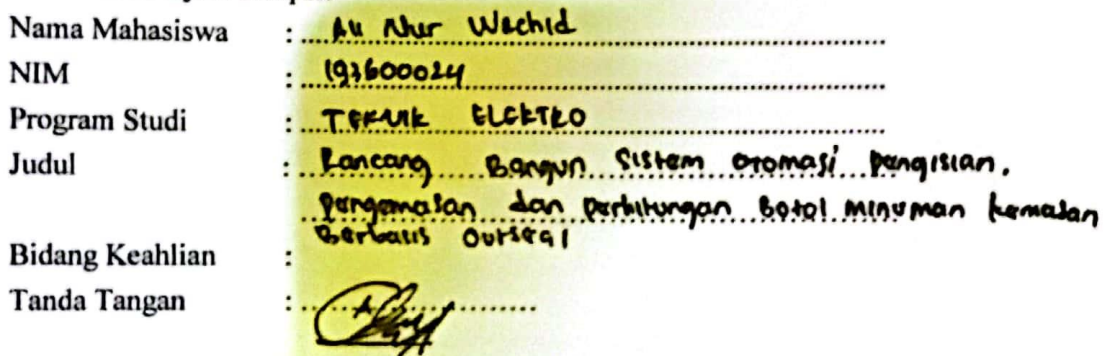 Nama Mahasiswa : Ali Nur Wachid
NIM : 193600024
Program Studi : TEKNIK ELEKTRO
Judul : Rancang Bangun Sistem otomasi pengisian,
pengemasan dan perhitungan Botol minuman kemasan
Berbasis Outseal
Bidang Keahlian :
Tanda Tangan :